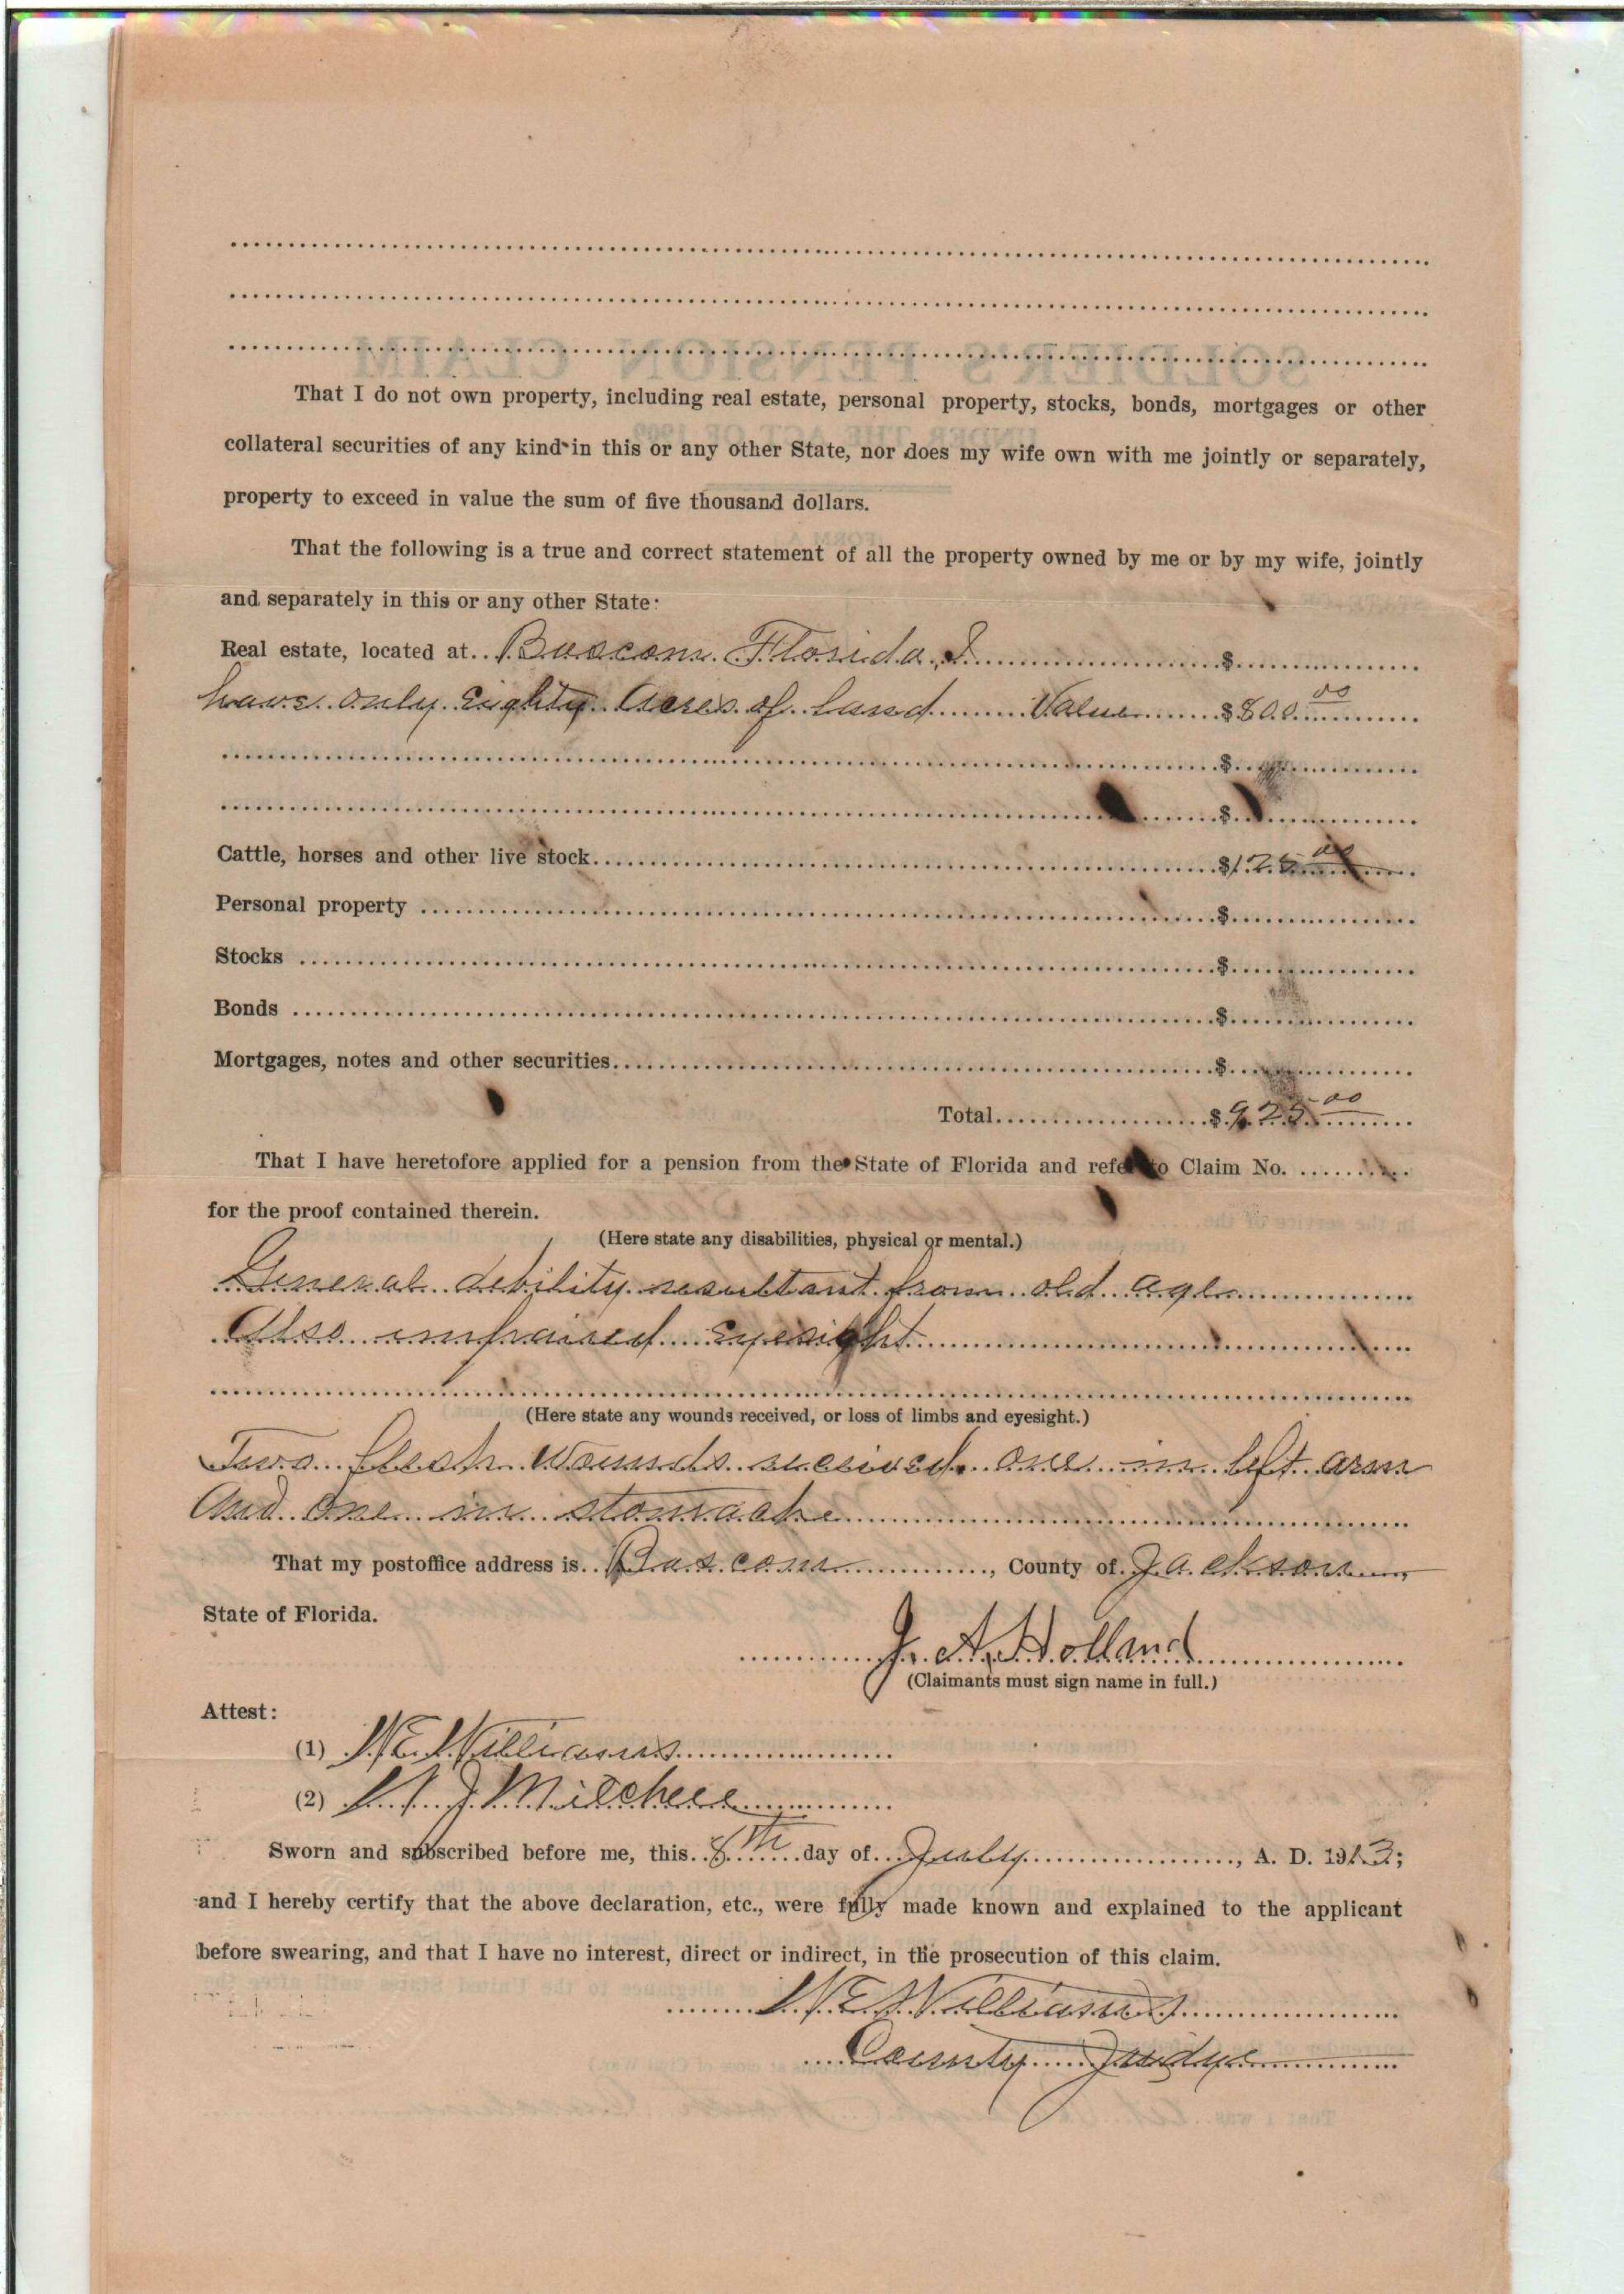 That I do not own property, including real estate, personal property, stocks, bonds, mortgages or other
collateral securities of any kind in this or any other State, nor does my wife own with me jointly or separately,
property to exceed in value the sum of five thousand dollars.
That the following is a true and correct statement of all the property owned by me or by my wife, jointly
and separately in this or any other State:
Real estate, located at Bascom Florida, I $
have only Eighty Acres of land Value $800.00
$
$
Cattle, horses and other live stock $125.00
Personal property $
Stocks $
Bonds $
Mortgages, notes and other securities $
Total $925.00
That I have heretofore applied for a pension from the State of Florida and refer to Claim No.
for the proof contained therein.
(Here state any disabilities, physical or mental.)
General debility resultant from old age
Also impaired Eyesight
(Here state any wounds received, or loss of limbs and eyesight.)
Two flesh wounds received. one in left arm
And one in stomache
That my postoffice address is Bascom, County of Jackson
State of Florida.
J. A. Holland
(Claimants must sign name in full.)
Attest:
(1) W E Williams
(2) J Mitchell
Sworn and subscribed before me, this 8th day of July, A. D. 1913;
and I hereby certify that the above declaration, etc., were fully made known and explained to the applicant
before swearing, and that I have no interest, direct or indirect, in the prosecution of this claim.
W E Williams
County Judge